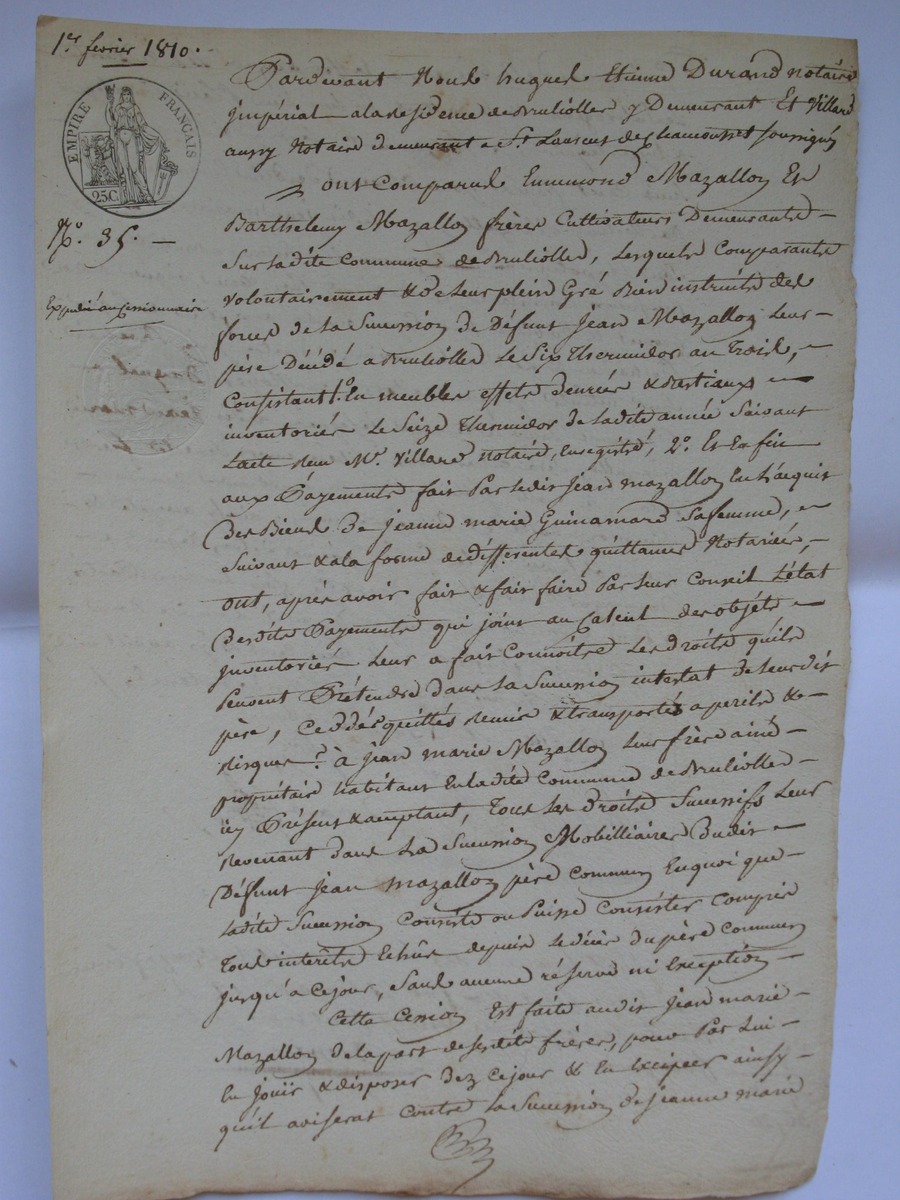 1er février 1810.
EMPIRE FRANÇAIS
25C.
No. 35. —
Expédié au Cessionnaire
Pardevant Nous hugues Etienne Durand Notaire
jmpérial ala residence de Brulliolles y Demeurant Et Villard
aussy Notaire demeurant a St. Laurent de Chamousset soussignés
ont Comparus Ennemond Mazallon Et
Barthelemy Mazallon frères Cultivateurs Demeurants –
Sur ladite Commune de Brulliolles, Lesquels Comparants
volontairement & de Leur plein Gré Bien instruits des
forces de la Succession de Défunt Jean Mazallon Leur –
père Décédé a Brulliolles Le Six Thermidor an Trois, –
Consistant 1.° En meubles effets denrées & bestiaux –
inventoriés Le Seize Thermidor de Ladite année Suivant
Lacte Reçu Me. Villard notaire, Enregistré, 2.° Et En fin
aux Payements fait Par Ledit Jean mazallon En L'acquit
Des Biens De Jeanne marie Guinamard Sa femme, –
Suivant & a la forme de differentes quittances Notariées, –
ont, après avoir fait & fait faire Par Leur Conseil L'état
Desdits Payements qui joint au Calcul des objets –
jnventoriés Leur a fait Connoitre Les droits qu'ils
Peuvent Prétendre dans La Succession intestat de Leur dit
père, Cédés quittés Remis & transportés a perils & –
Risques à Jean marie Mazallon Leur frère ainé –
propriétaire habitant En Ladite Commune de Brulliolles –
icy Présent & acceptant, Tous Les droits Successifs Leur
Revenant dans La Succession Mobilliaire Dudit –
Défunt Jean mazallon père Commun En quoi que –
Ladite Succession Consiste ou Puisse Consister Compris
Tous interêts Echûs depuis Le décès du père Commun
jusqu'a Ce jour, Sans aucune réserve ni Exception –
Cette Cession Est faite audit Jean marie –
Mazallon de la part de Sesdits frères, pour Par Lui –
En jouir & disposer dez Ce jour & En Exciper ainsy –
qu'il aviserat Contre La Succession de Jeanne marie